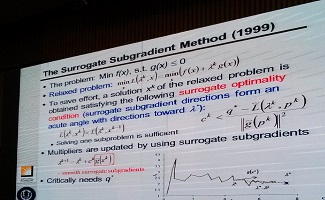 The Surrogate Subgradient Method (1999)
• The problem: Min f(x), s.t. g(x) ≤ 0
• Relaxed problem:
• To save effort, a solution xᵏ of the relaxed problem is
obtained satisfying the following surrogate optimality
condition (surrogate subgradient directions form an
acute angle with directions toward λ*):
• Solving one subproblem is sufficient
• Multipliers are updated by using surrogate subgradients
– smooth surrogate subgradients
• Critically needs q*